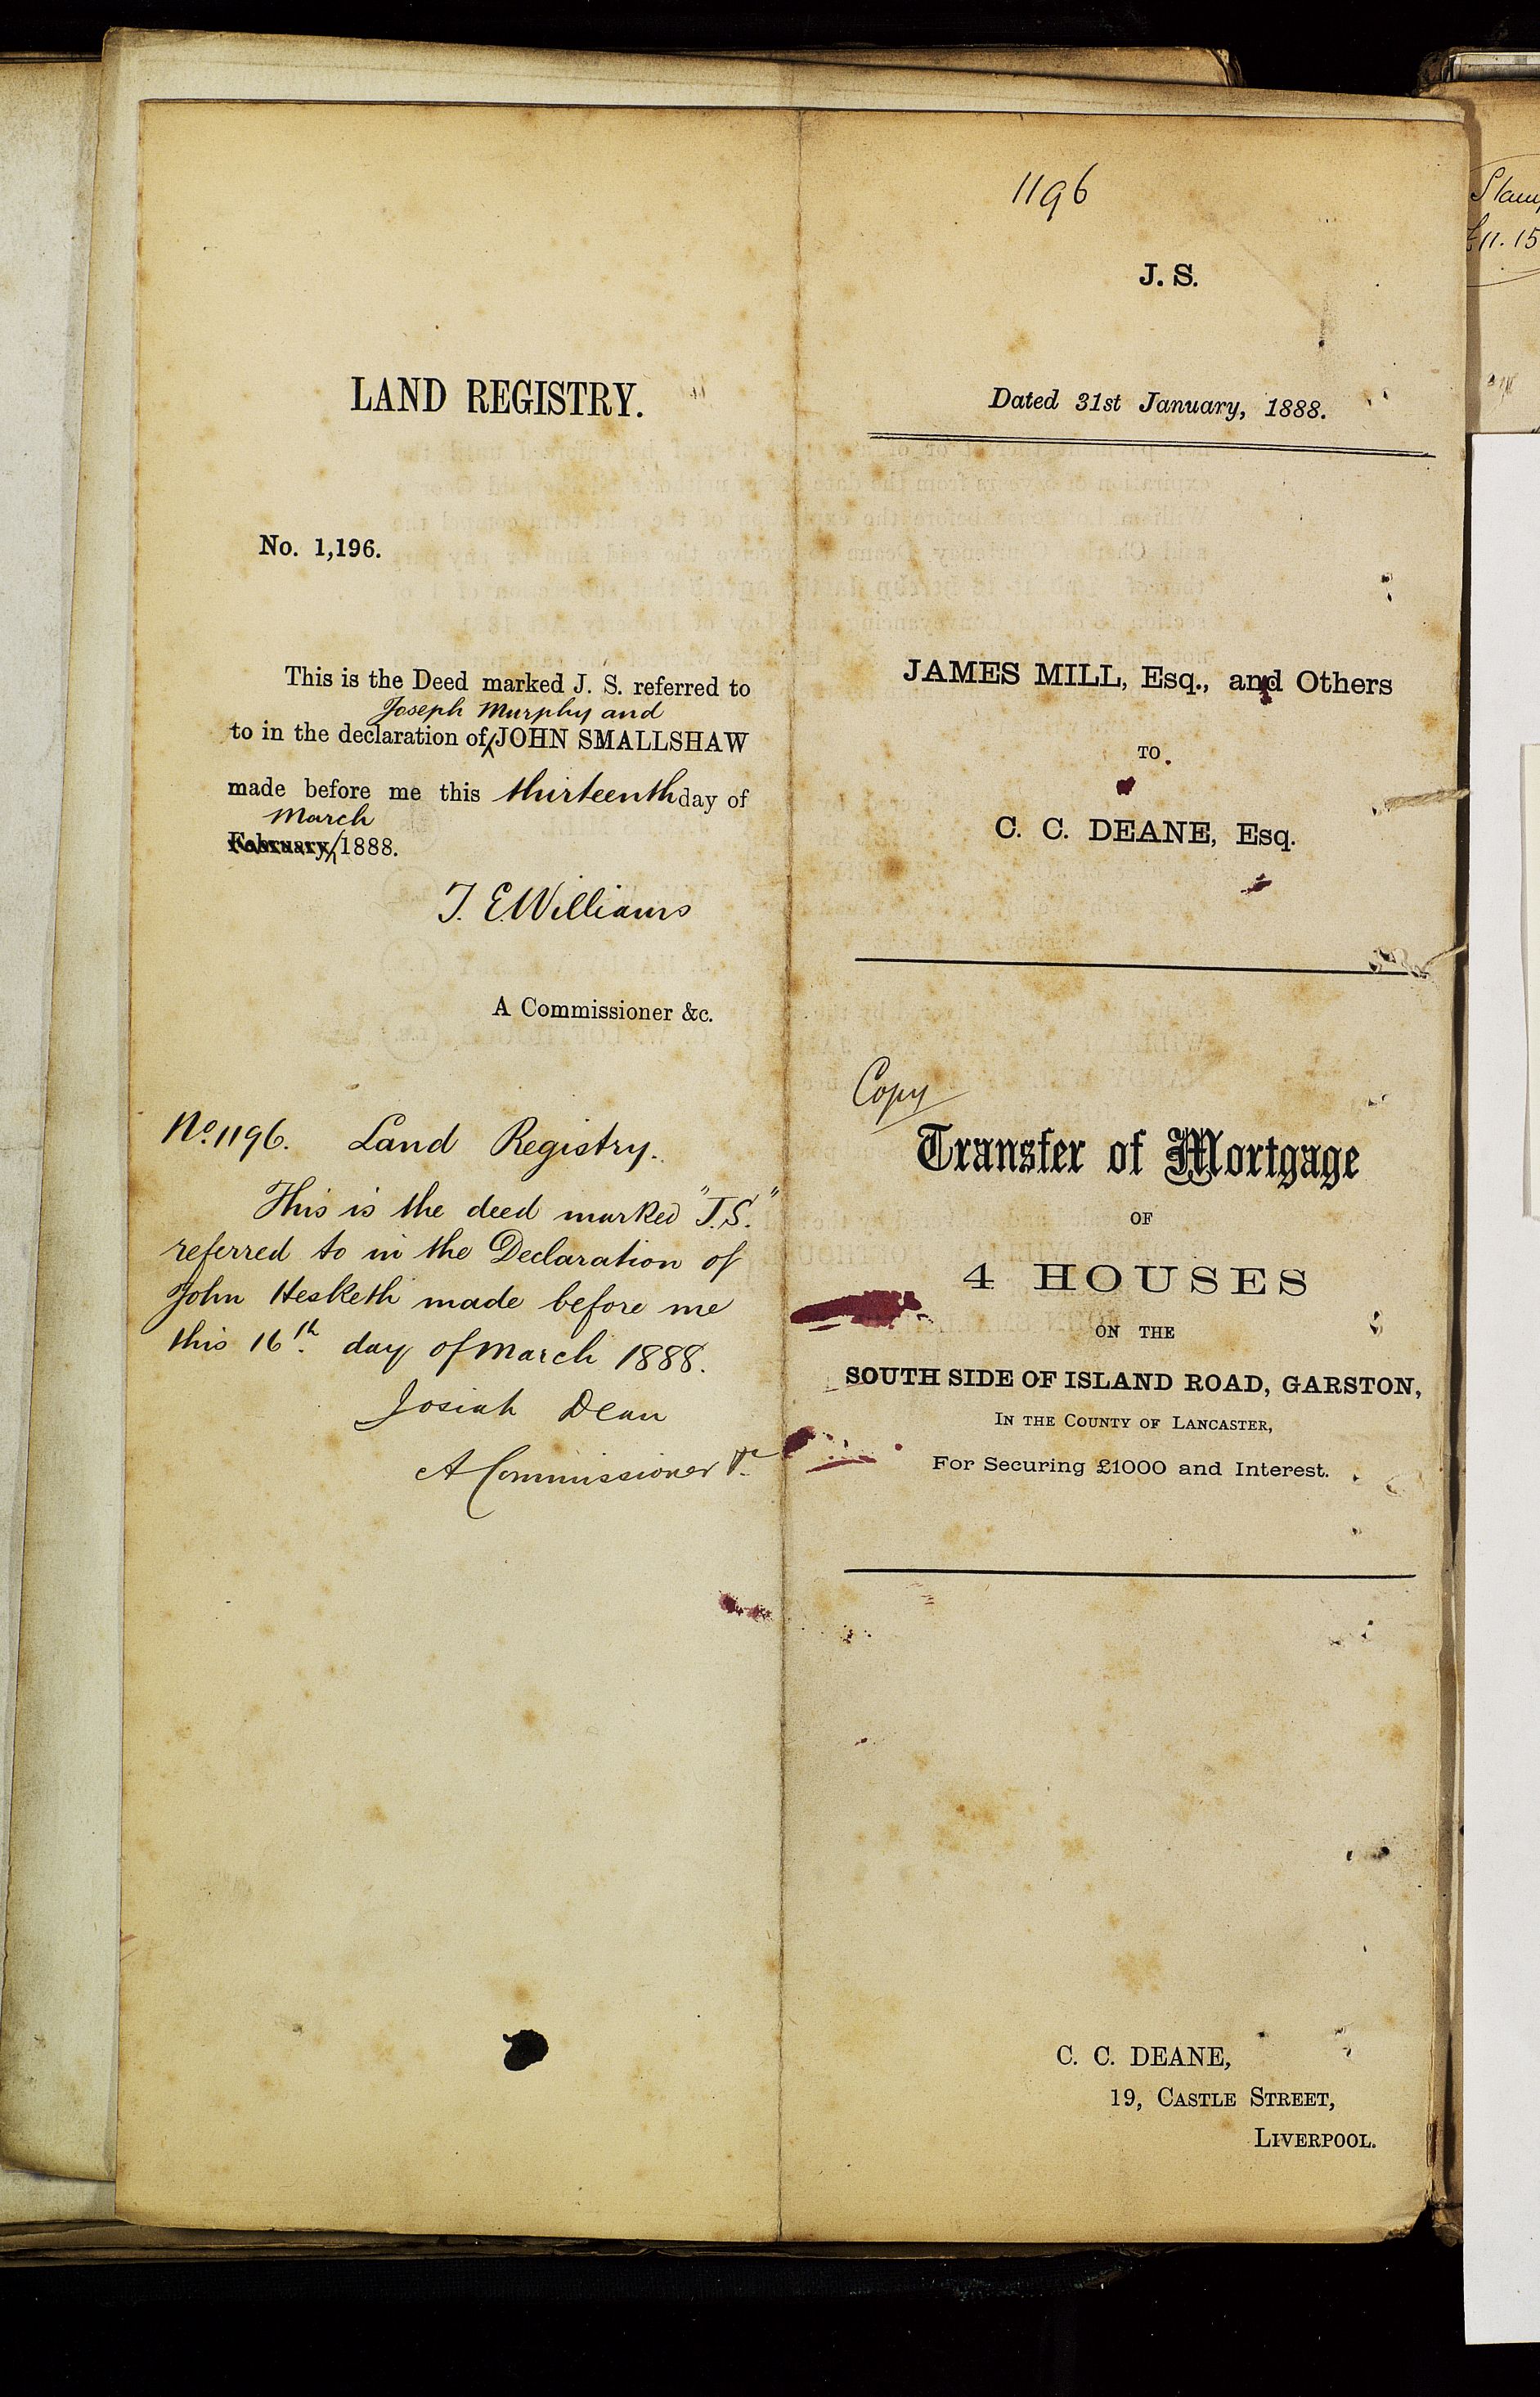 LAND REGISTRY.
No. 1,196.
This is the Deed marked J. S. referred to
Joseph Murphy and
to in the declaration of JOHN SMALLSHAW
made before me this thirteenth day of
March
February, 1888.
T. E. Williams
A Commissioner &c.
No. 1196. Land Registry.
This is the deed marked "J.S."
referred to in the Declaration of
John Hesketh made before me
this 16th. day of March 1888.
Josiah Dean
A Commissioner &c
1196
J. S.
Dated 31st January, 1888.
JAMES MILL, Esq., and Others
TO
C. C. DEANE, Esq.
Copy
Transfer of Mortgage
OF
4 HOUSES
ON THE
SOUTH SIDE OF ISLAND ROAD, GARSTON,
IN THE COUNTY OF LANCASTER,
For Securing £1000 and Interest.
C. C. DEANE,
19, CASTLE STREET,
LIVERPOOL.